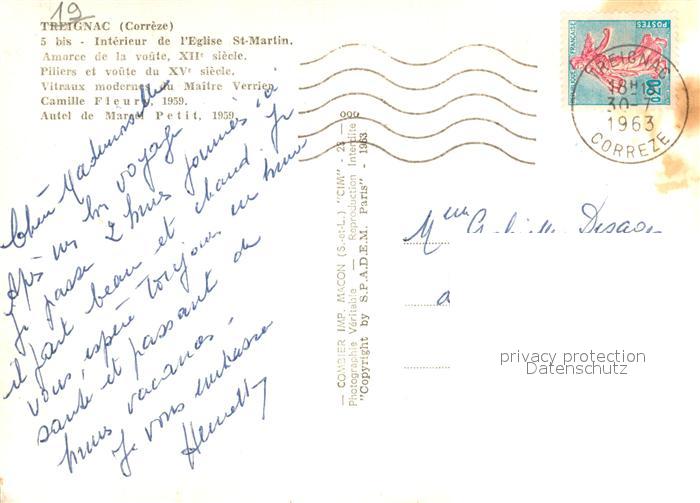 19
TREIGNAC (Corrèze)
5 bis - Intérieur de l'Eglise St-Martin.
Amorce de la voûte, XIIe siècle.
Piliers et voûte du XVe siècle.
Vitraux modernes du Maître Verrier
Camille Fleury, 1959.
Autel de Marcel Petit, 1959.
Chère Mademoiselle
Après un bon voyage
je passe 2 bonnes journées à
il fait beau et chaud. Je
vous espère toujours en bonne
santé et passant de
bonnes vacances.
Je vous embrasse
— COMBIER IMP. MACON (S.-et-L.) "CIM" - 23 —
Photographie Véritable — Reproduction Interdite
"Copyright by S.P.A.D.E.M. Paris" - 1963
REPUBLIQUE FRANÇAISE
POSTES
0,20
TREIGNAC
18H
30-7
1963
CORREZE
Melle
a
privacy protection
Datenschutz